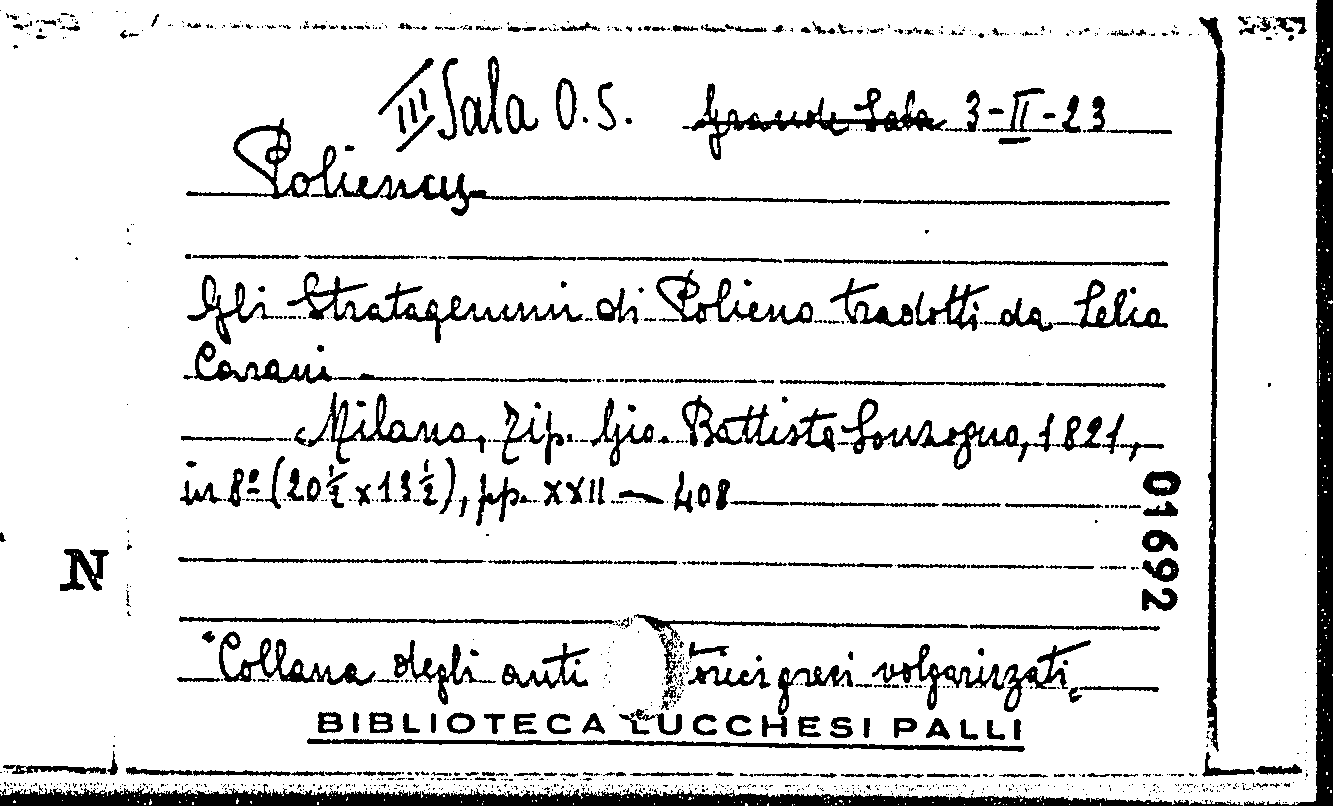 III Sala O.S. Grande Sala 3-II-23
Polieno
Gli Stratagemmi di Polieno tradotti da Lelio
Carani -
Milano, Tip. Gio. Battista Sonzogno, 1821,
in 8º (20½ x 13½), pp. XXII — 408
01692
N
"Collana degli anti torici greci volgarizzati"
BIBLIOTECA LUCCHESI PALLI